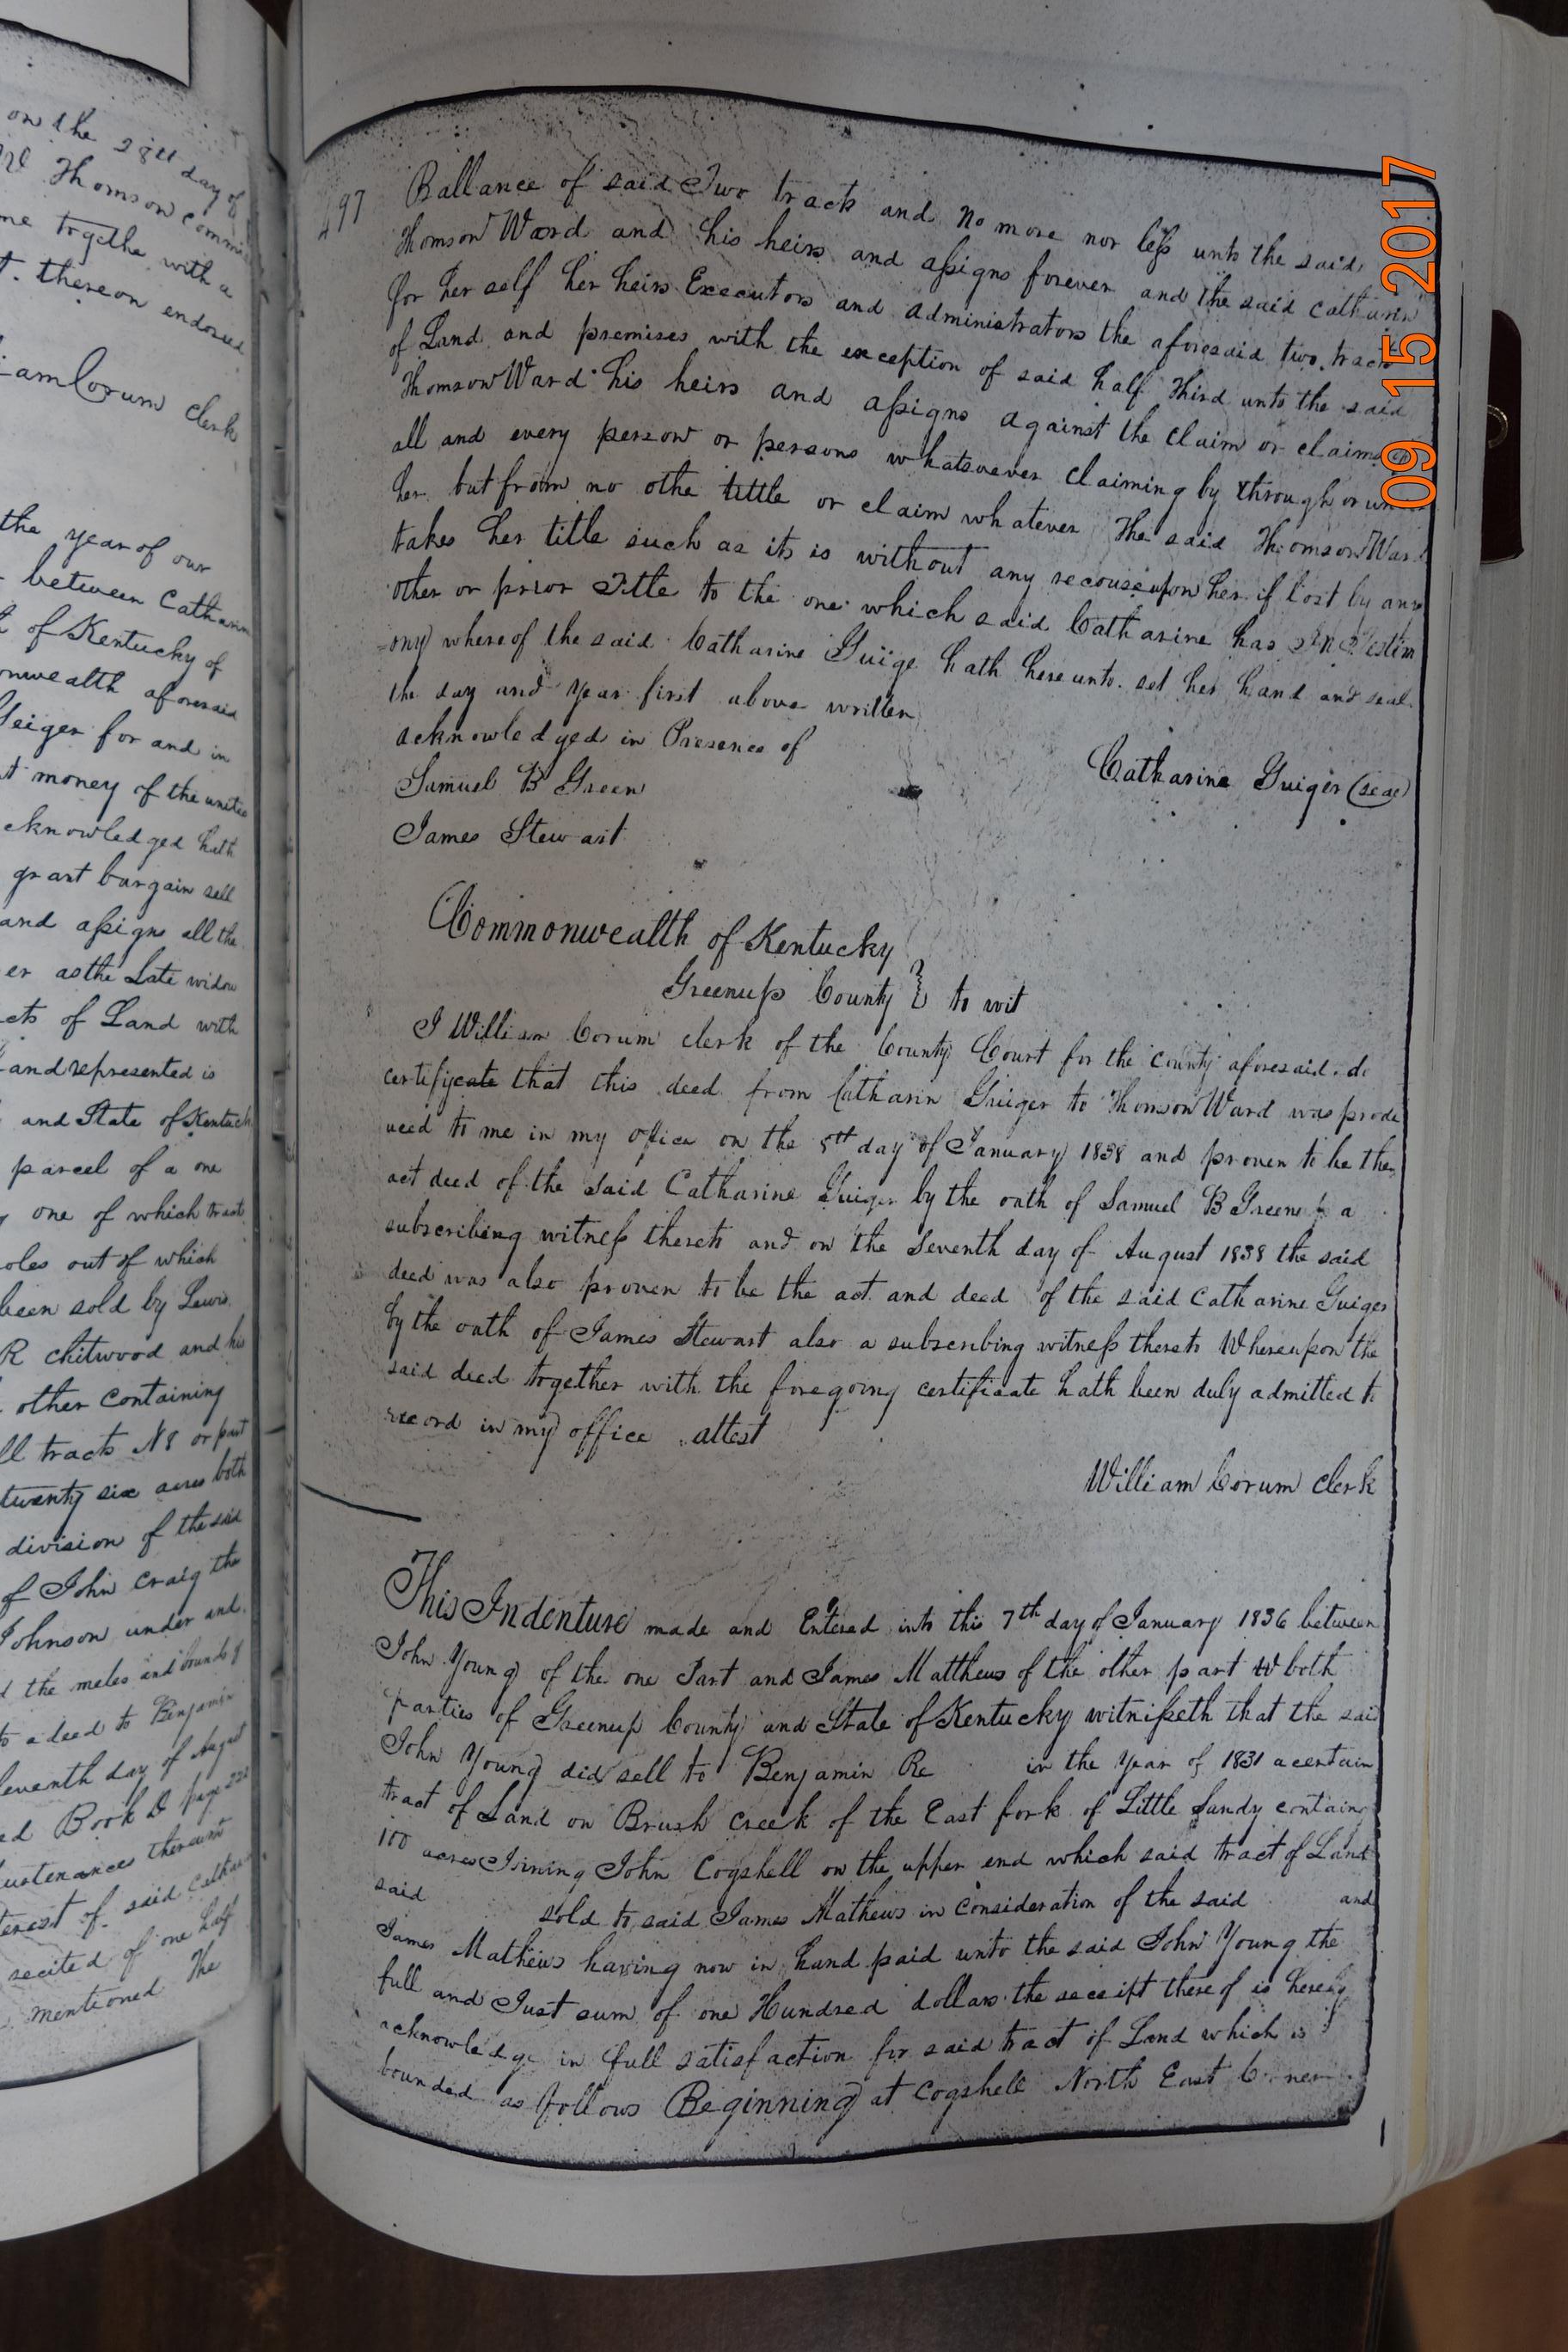 on the 28th day of
Thomson commis
me togethe with a
t. thereon endorsed
iam Corum clerk
the year of our
between Catharin
of Kentucky of
onwealth aforesaid
Geiger for and in
t money of the united
cknowledged hath
grant bargain sell
and assigns all the
er as the Late widow
cts of Land with
and represented is
and State of Kentuck
parcel of a one
one of which tract
oles out of which
been sold by Lewis
R chitwood and his
other containing
ll tracts N8 or part
twenty six acres both
division of the said
of John Craig the
Johnson under and
the metes and bounds of
to a deed to Benjamin
Seventh day of August
ed Book D page 222
urtenances thereunto
terest of said Cathar
recited of one half
mentioned The
497
Ballance of said Two tracts and no more nor less unto the said
Thomson Ward and his heirs and assigns forever and the said Catharin
for her self her heirs Executors and administrators the aforesaid two tracts
of Land and premises with the exception of said half Third unto the said
Thomson Ward his heirs and assigns against the claim or claims of
all and every person or persons whatsoever claiming by through or un
her but from no othe tittle or claim whatever The said Thomson Ward
takes her title such as its is without any recouse upon her if lost by any
other or prior Title to the one which said Catharine has In Testim
ony whereof the said Catharine Guige hath hereunto set her hand and seal
the day and year first above written
acknowledged in Presence of
Catharine Guiger (seal)
Samuel B Green
James Stewart
Commonwealth of Kentucky
Greenup County } to wit
I William Corum clerk of the County Court for the county aforesaid do
certifycate that this deed from Catharin Guiger to Thomson Ward was prod
uced to me in my office on the 5th day of January 1838 and proven to be the
act deed of the said Catharine Guiger by the oath of Samuel B Green a
subscribing witness thereto and on the Seventh day of August 1838 the said
deed was also proven to be the act and deed of the said Catharine Guiger
by the oath of James Stewart also a subscribing witness thereto Whereupon the
said deed together with the foregoing certificate hath been duly admitted to
record in my office attest
William Corum clerk
This Indenture made and Entered into this 7th day of January 1836 between
John Young of the one Part and James Matthews of the other part both
parties of Greenup County and State of Kentucky witnisseth that the said
John Young did sell to Benjamin Re in the Year of 1831 a certain
tract of Land on Brush Creek of the East fork of Little Sandy containg
100 acres Joining John Cogshell on the upper end which said tract of Land
said sold to said James Mathews in consideration of the said and
James Mathews having now in hand paid unto the said John Young the
full and Just sum of one Hundred dollars the receipt thereof is hereby
acknowledge in full satisfaction for said tract of Land which is
bounded as follows Beginning at Cogshell North East Corner
09 15 2017